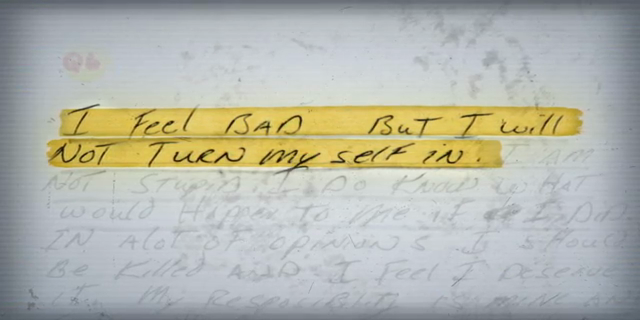 Q6
I Feel BAD But I will
NOT TURN my self in. I am
NOT STUPID I DO KNOW WHAT
would HAPPEN TO me if I DID
IN Alot OF opinions I SHOULD
Be Killed AND I Feel I Deserve
iT. My Responsibility is mine AND